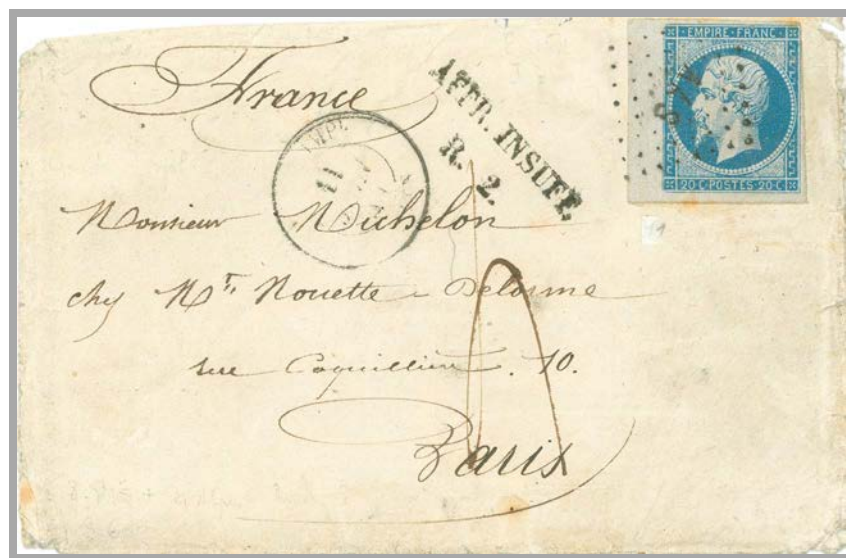 France
AFFR. INSUFF.
R. 2.
EMPIRE FRANC
20 C POSTES 20 C
Monsieur Michelon
chez Mr. Nouette-Delorme
rue Coquillière. 10.
Paris